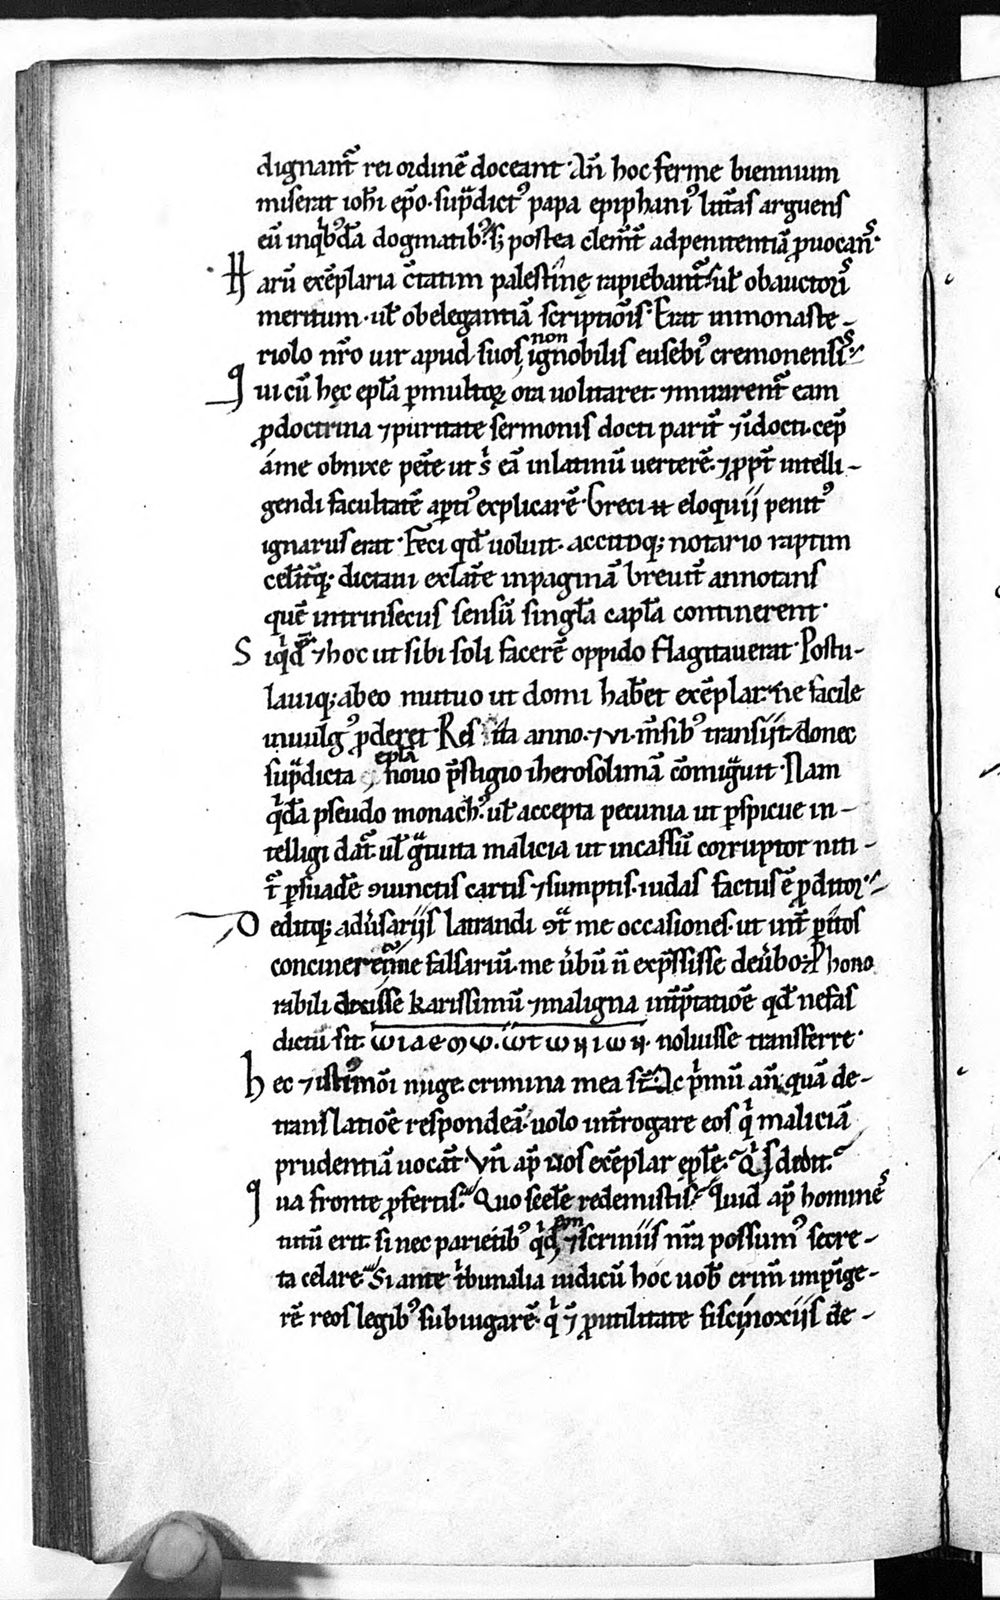 dignant̃ rei ordinẽ doceant. Añ hoc ferme biennium
miserat ioh̃i ep̃o. sup̃dict᾽ papa epiphani᾽ litt̃as arguens
eũ inq̃b᾽dã dogmatib᾽. ⁊ postea clem̃t̃ ad penitentiã ꝓuocans.
Harũ exẽplaria c̃tatim palestinę rapiebant̃. ut̃ ob auctoris
meritum. ut̃ ob elegantiã scriptiõis. Erat in monaste-
riolo nr̃o uir apud suos non ignobilis eusebi᾽ cremonensis.
qui cũ hęc ep̃la ꝑ multoꝝ ora uolitaret. ⁊ mirarent̃ eam
ꝓ doctrina ⁊ puritate sermonis docti parit̃ ⁊ ĩdocti. cep̃
a me obnixe pet̃e ut s̃ eã in latinũ uerterẽ. ⁊ ꝓpt̃ intelli-
gendi facultatẽ apti᾽ explicarẽ. Greci ñ eloquii penit᾽
ignarus erat. Feci qd̃ uoluit. accitoq; notario raptim
celerit̃q; dictaui ex lat̃e in paginã breuit̃ annotans
quẽ intrinsecus sensũ singl̃a capl̃a continerent.
Siq̃dẽ ⁊ hoc ut sibi soli facerẽ oppido flagitauerat. Postu-
lauiq; ab eo mutuo ut domi hab̃et exẽplar. ne facile
in uulg᾽ ꝓderet. Res ita anno. ⁊ vi. m̃sib᾽ transiit. donec
sup̃dicta ep̃la nouo p̃stigio iherosolimã cõmig̃uit. Nam
q̃dã pseudo monach᾽. ut̃ accepta pecunia ut ꝑspicue in-
telligi dat̃. ut̃ g̃tuita malicia ut in cassũ corruptor niti-
t̃ ꝑsuadẽ ꝯiunctis cartis ⁊ sumptis. iudas factus ẽ ꝓditor.
Deditq; adũsariis latrandi ꝯt̃ me occasiones. ut int̃ ꝑitos
concinerent̃ me falsariũ. me ũbũ ñ exp̃ssisse de ũbo. ꝑ hono
rabili dixisse karissimũ ⁊ maligna int̃p̃tatiõe qd̃ nefas
dictũ sit ωιαεσψ. ωτωηιωη. noluisse transferre.
hec ⁊ istimõi nuge. crimina mea st̃. Ac p̃mũ añ quã de-
translatiõe respondeã. uolo int̃rogare eos q̃ maliciã
prudentiã uocat̃. Vñ ap̃ uos exẽplar ep̃lẽ. Q̃s dedit.
qua fronte ꝓfertis. Quo scel̃e redemistis. Quid ap̃ homines
tutũ erit. si nec parietib᾽ q̃dem ⁊ scriniis nr̃a possum᾽ secre-
ta celare. Si ante t̃bunalia iudicũ hoc uob̃ crim̃ impĩge-
rẽ reos legib᾽ subiugarẽ. q̃ ⁊ ꝓ utilitate fisci noxiis de-